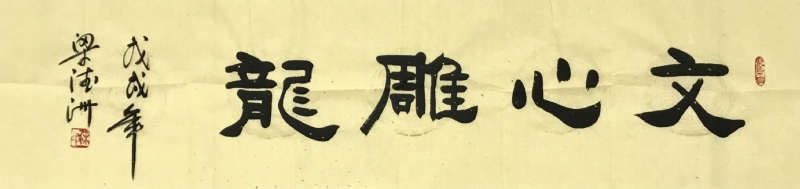 文心雕龍
戊戌年
梁德洲